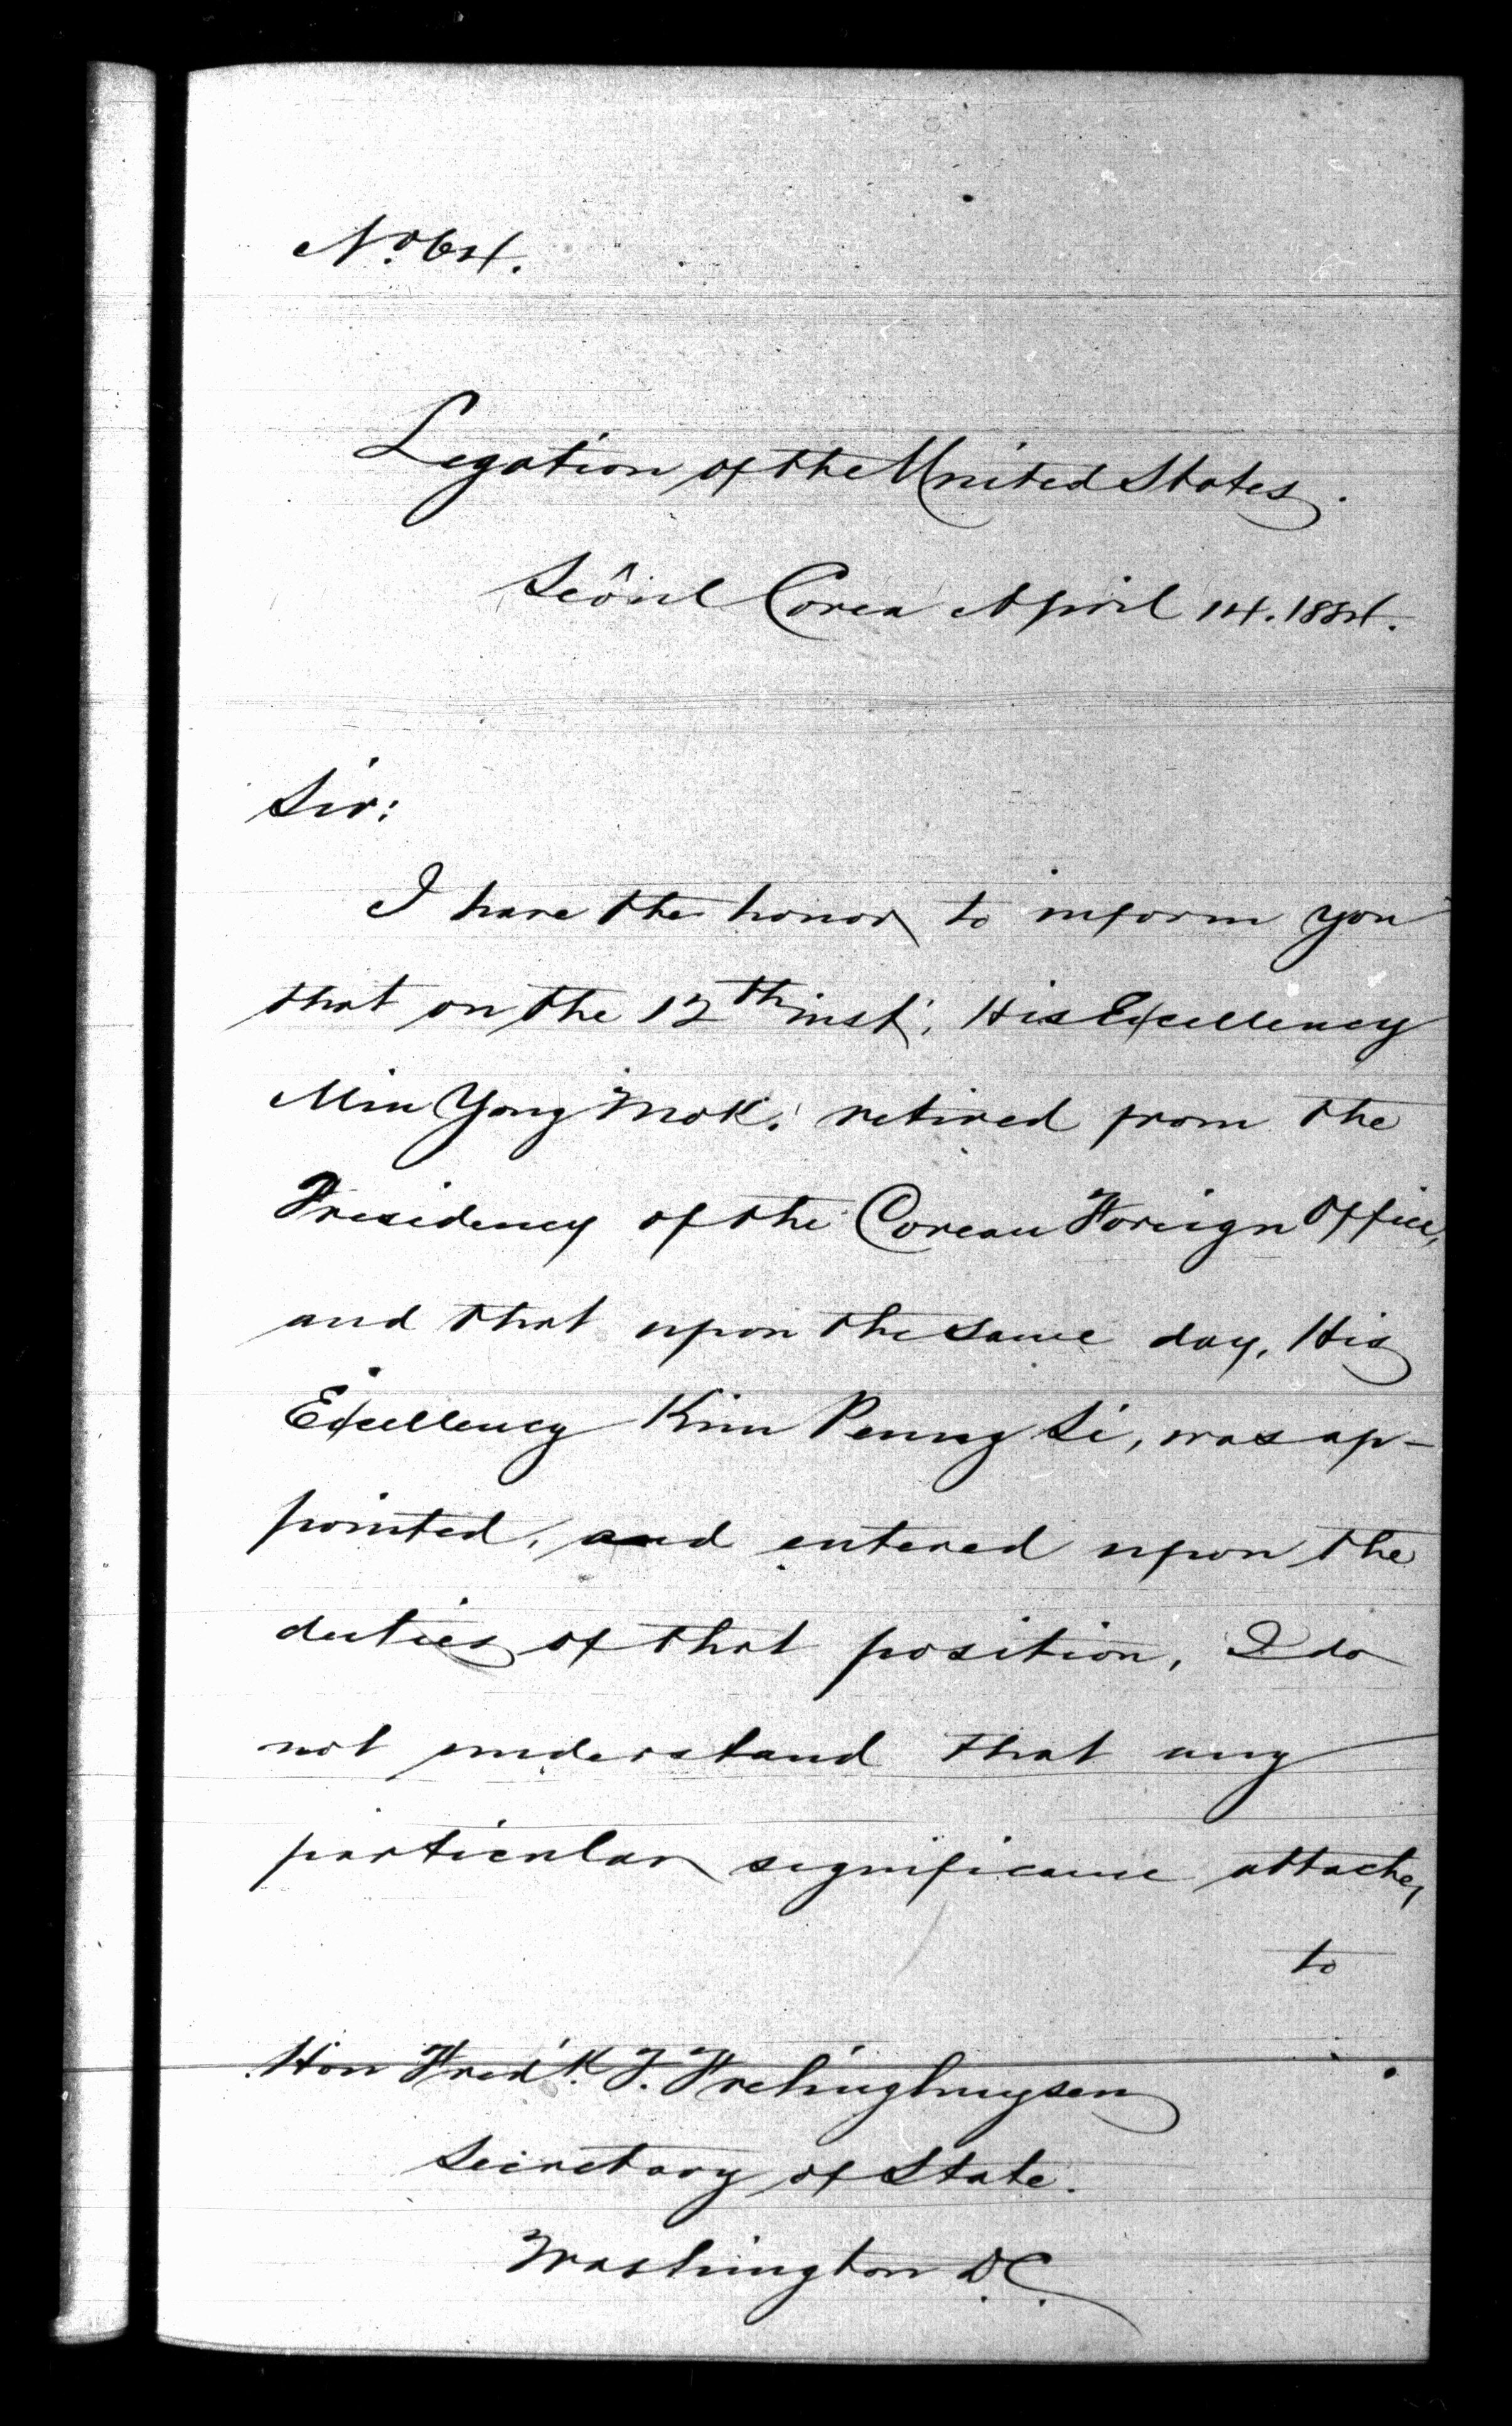 Nº 64.
Legation of the United States.
Seôul Corea April 14. 1884.
Sir:
I have the honor to inform you
that on the 12th inst, His Excellency
Min Yong Mok, retired from the
Presidency of the Corean Foreign Office,
and that upon the same day, His
Excellency Kim Peung Si, was ap-
pointed, and entered upon the
duties of that position, I do
not understand that any
particular significance attaches
to
Hon Fred'k. T. Frelinghuysen
Secretary of State.
Washington D.C.